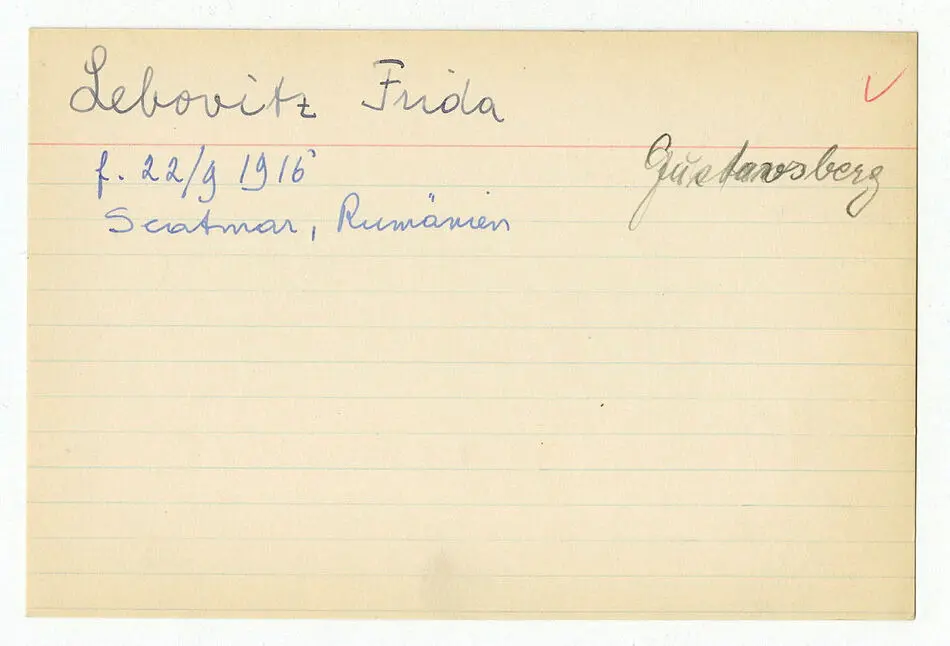 Lebovitz Frida
f. 22/9 1916
Gustavsberg
Scatmar, Rumänien